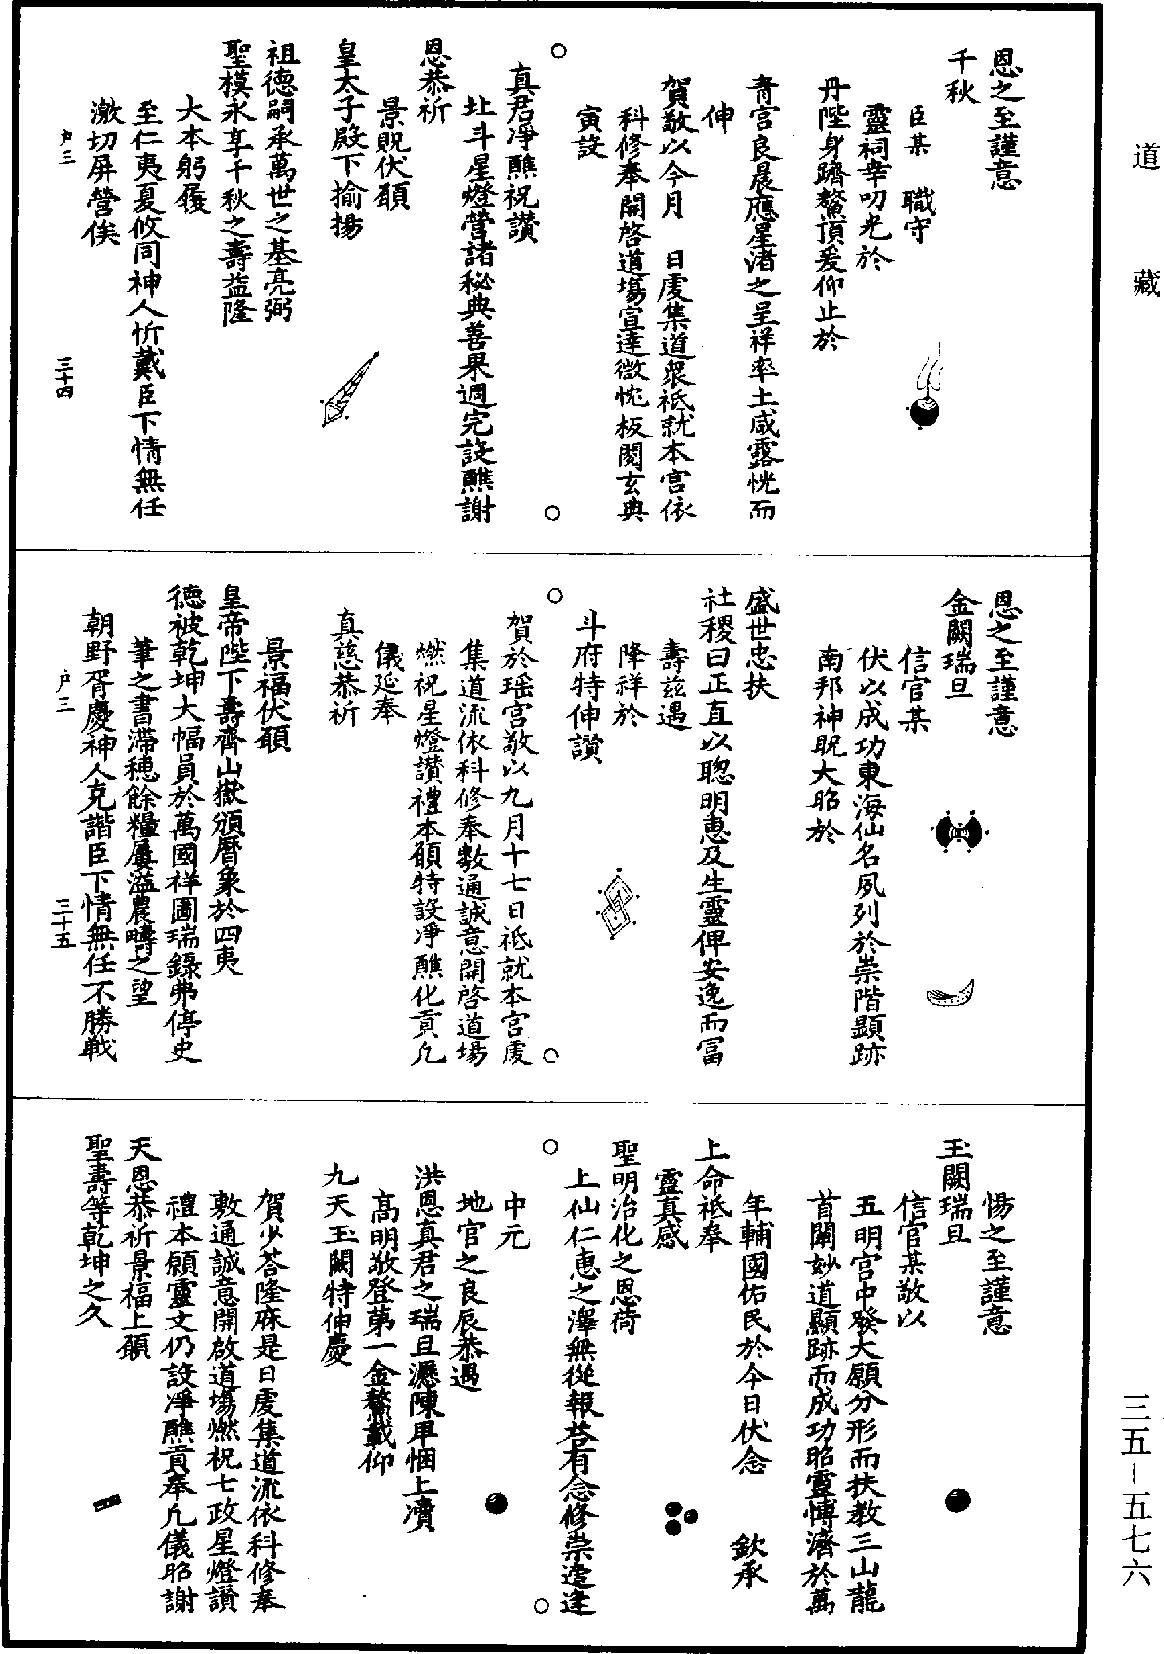 道藏
恩之至謹意
千秋
臣某　職守
靈祠幸叨光於
丹陛身躋鰲頂爰仰止於
青宮良晨應星渚之呈祥率土咸露恍而
伸
賀敬以今月　日虔集道衆祗就本宮依
科修奉開啓道場宣達微忱板閱玄典
寅設
○　○
真君凈醮祝讚
北斗星燈營諸秘典善果週完設醮謝
恩恭祈
景貺伏願
皇太子殿下揄揚
祖德嗣承萬世之基亮弼
聖模永享千秋之壽益隆
大本躬履
至仁夷夏攸同神人忻戴臣下情無任
激切屏營俟
户三　三十四
恩之至謹意
金闕瑞旦
信官某
伏以成功東海仙名夙列於崇階顯跡
南邦神貺大昭於
盛世忠扶
社稷曰正直以聰明惠及生靈俾安逸而富
壽茲遇
降祥於
斗府特伸讚
○　○
賀於瑤宮敬以九月十七日祗就本宮虔
集道流依科修奉敷通誠意開啓道場
燃祝星燈讚禮本願特設凈醮化貢凡
儀延奉
真慈恭祈
景福伏願
皇帝陛下壽齊山嶽頒曆象於四夷
德被乾坤大幅員於萬國祥圖瑞錄弗停史
筆之書滯穗餘糧屢溢農疇之望
朝野胥慶神人克諧臣下情無任不勝戰
户三　三十五
惕之至謹意
玉闕瑞旦
信官某敬以
五明宮中發大願分形而扶教三山龍
首闡妙道顯跡而成功昭靈博濟於萬
年輔國佑民於今日伏念　欽承
上命祗奉
靈真感
聖明治化之恩荷
上仙仁惠之澤無從報荅有念修崇適逢
○　○
中元
地官之良辰恭遇
洪恩真君之瑞旦瀝陳卑悃上瀆
高明敬登第一金鰲戴仰
九天玉闕特伸慶
賀少荅隆庥是日虔集道流依科修奉
敷通誠意開啟道場燃祝七政星燈讚
禮本願靈文仍設凈醮貢奉凡儀昭謝
天恩恭祈景福上願
聖壽等乾坤之久
三五－五七六